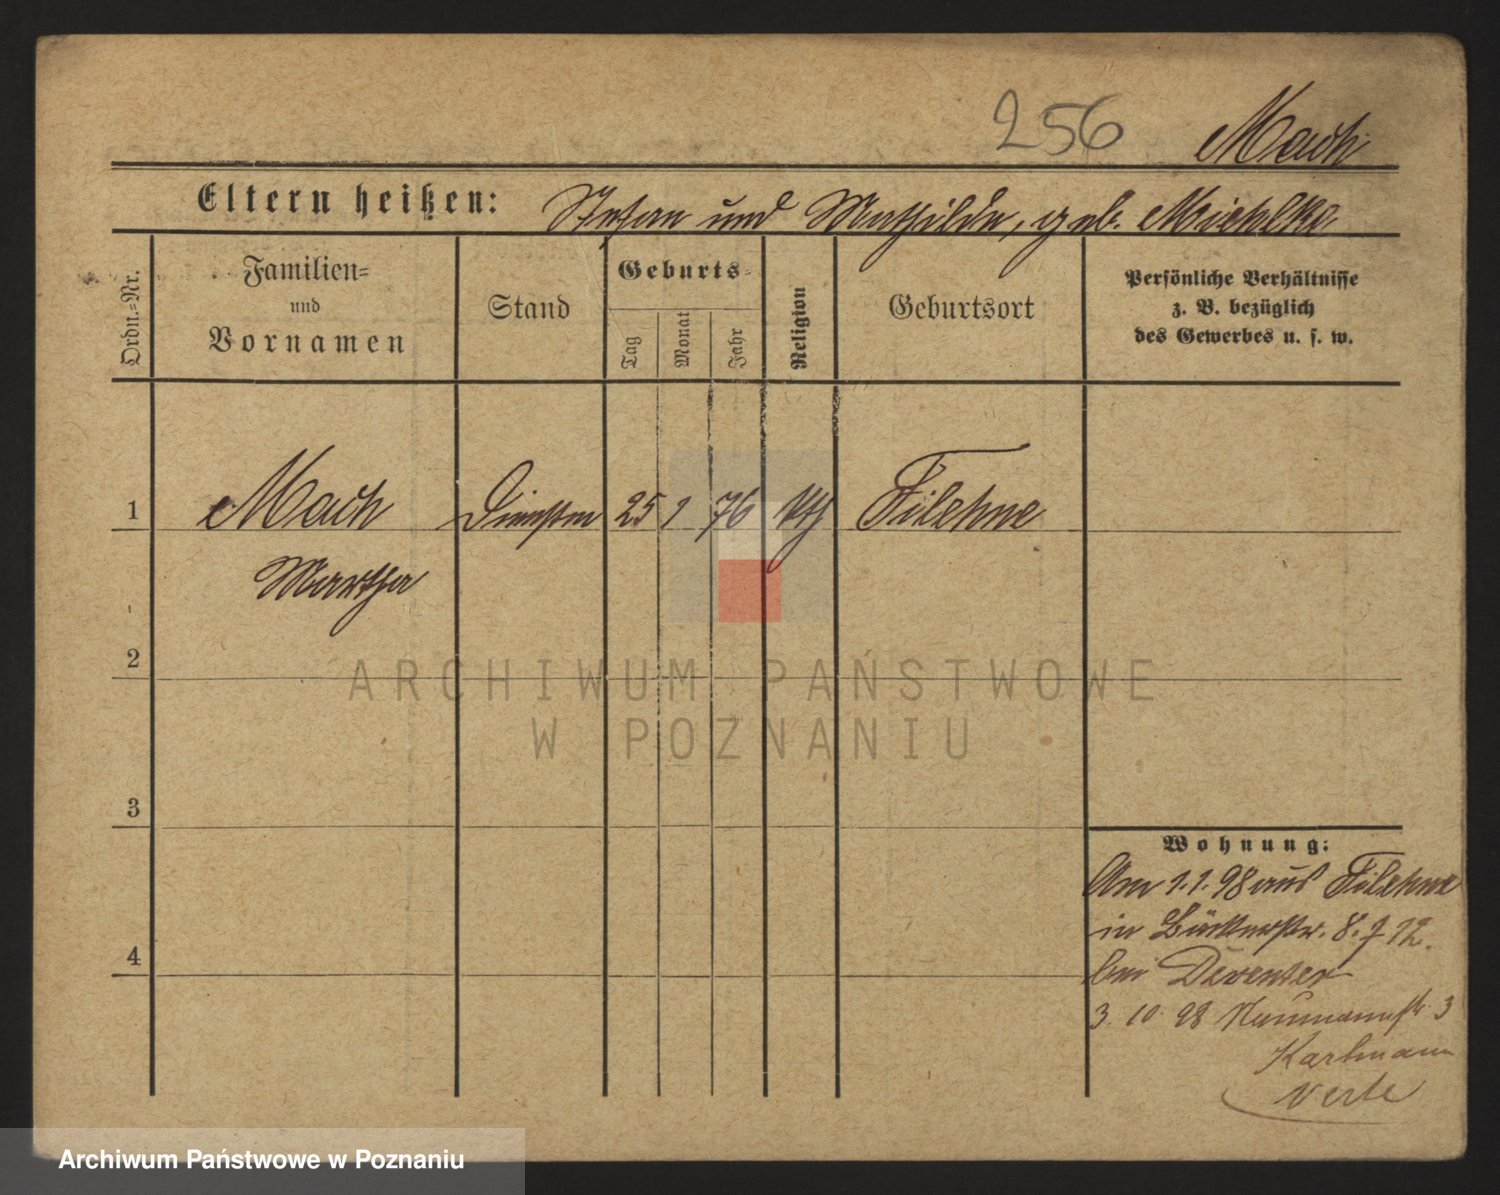 256 Mach
Eltern heißen: Stefan und Mathilde, geb. Miehlke
Ordn.=Nr.
Familien=
und
Vornamen
Stand
Geburts=
Tag
Monat
Jahr
Religion
Geburtsort
Persönliche Verhältnisse
z. B. bezüglich
des Gewerbes u. s. w.
1 Mach 25 1 76 kth Filehne
Martha
2
ARCHIWUM PAŃSTWOWE
W POZNANIU
3
Wohnung:
Am 1.1.98 aus Filehne
in Bäckerstr. 8.
bei Deventer
4
3. 10. 98 Naumannstr 3
verte
Archiwum Państwowe w Poznaniu